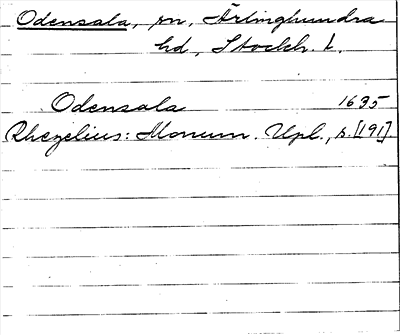 Odensala, sn, Ärlinghundra
hd, Stockh. l.
Odensala 1635
Rhezelius: Monum. Upl., s. [191]